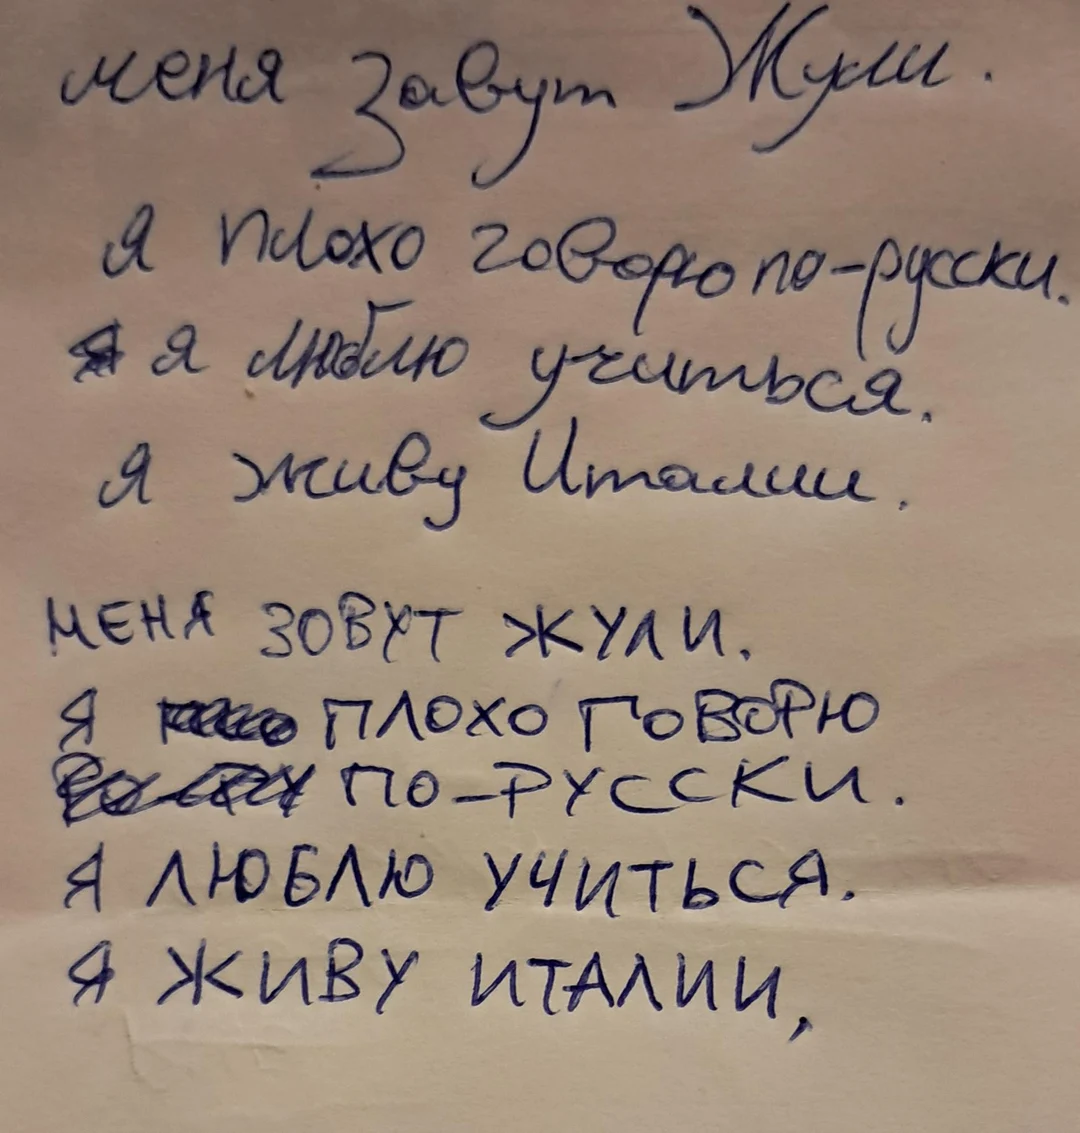 меня завут Жули.
я плохо говорю по-русски.
я люблю учиться.
я живу Италии.
МЕНЯ ЗОВУТ ЖУЛИ.
Я ПЛОХО ГОВОРЮ
ПО-РУССКИ.
Я ЛЮБЛЮ УЧИТЬСЯ.
Я ЖИВУ ИТАЛИИ,